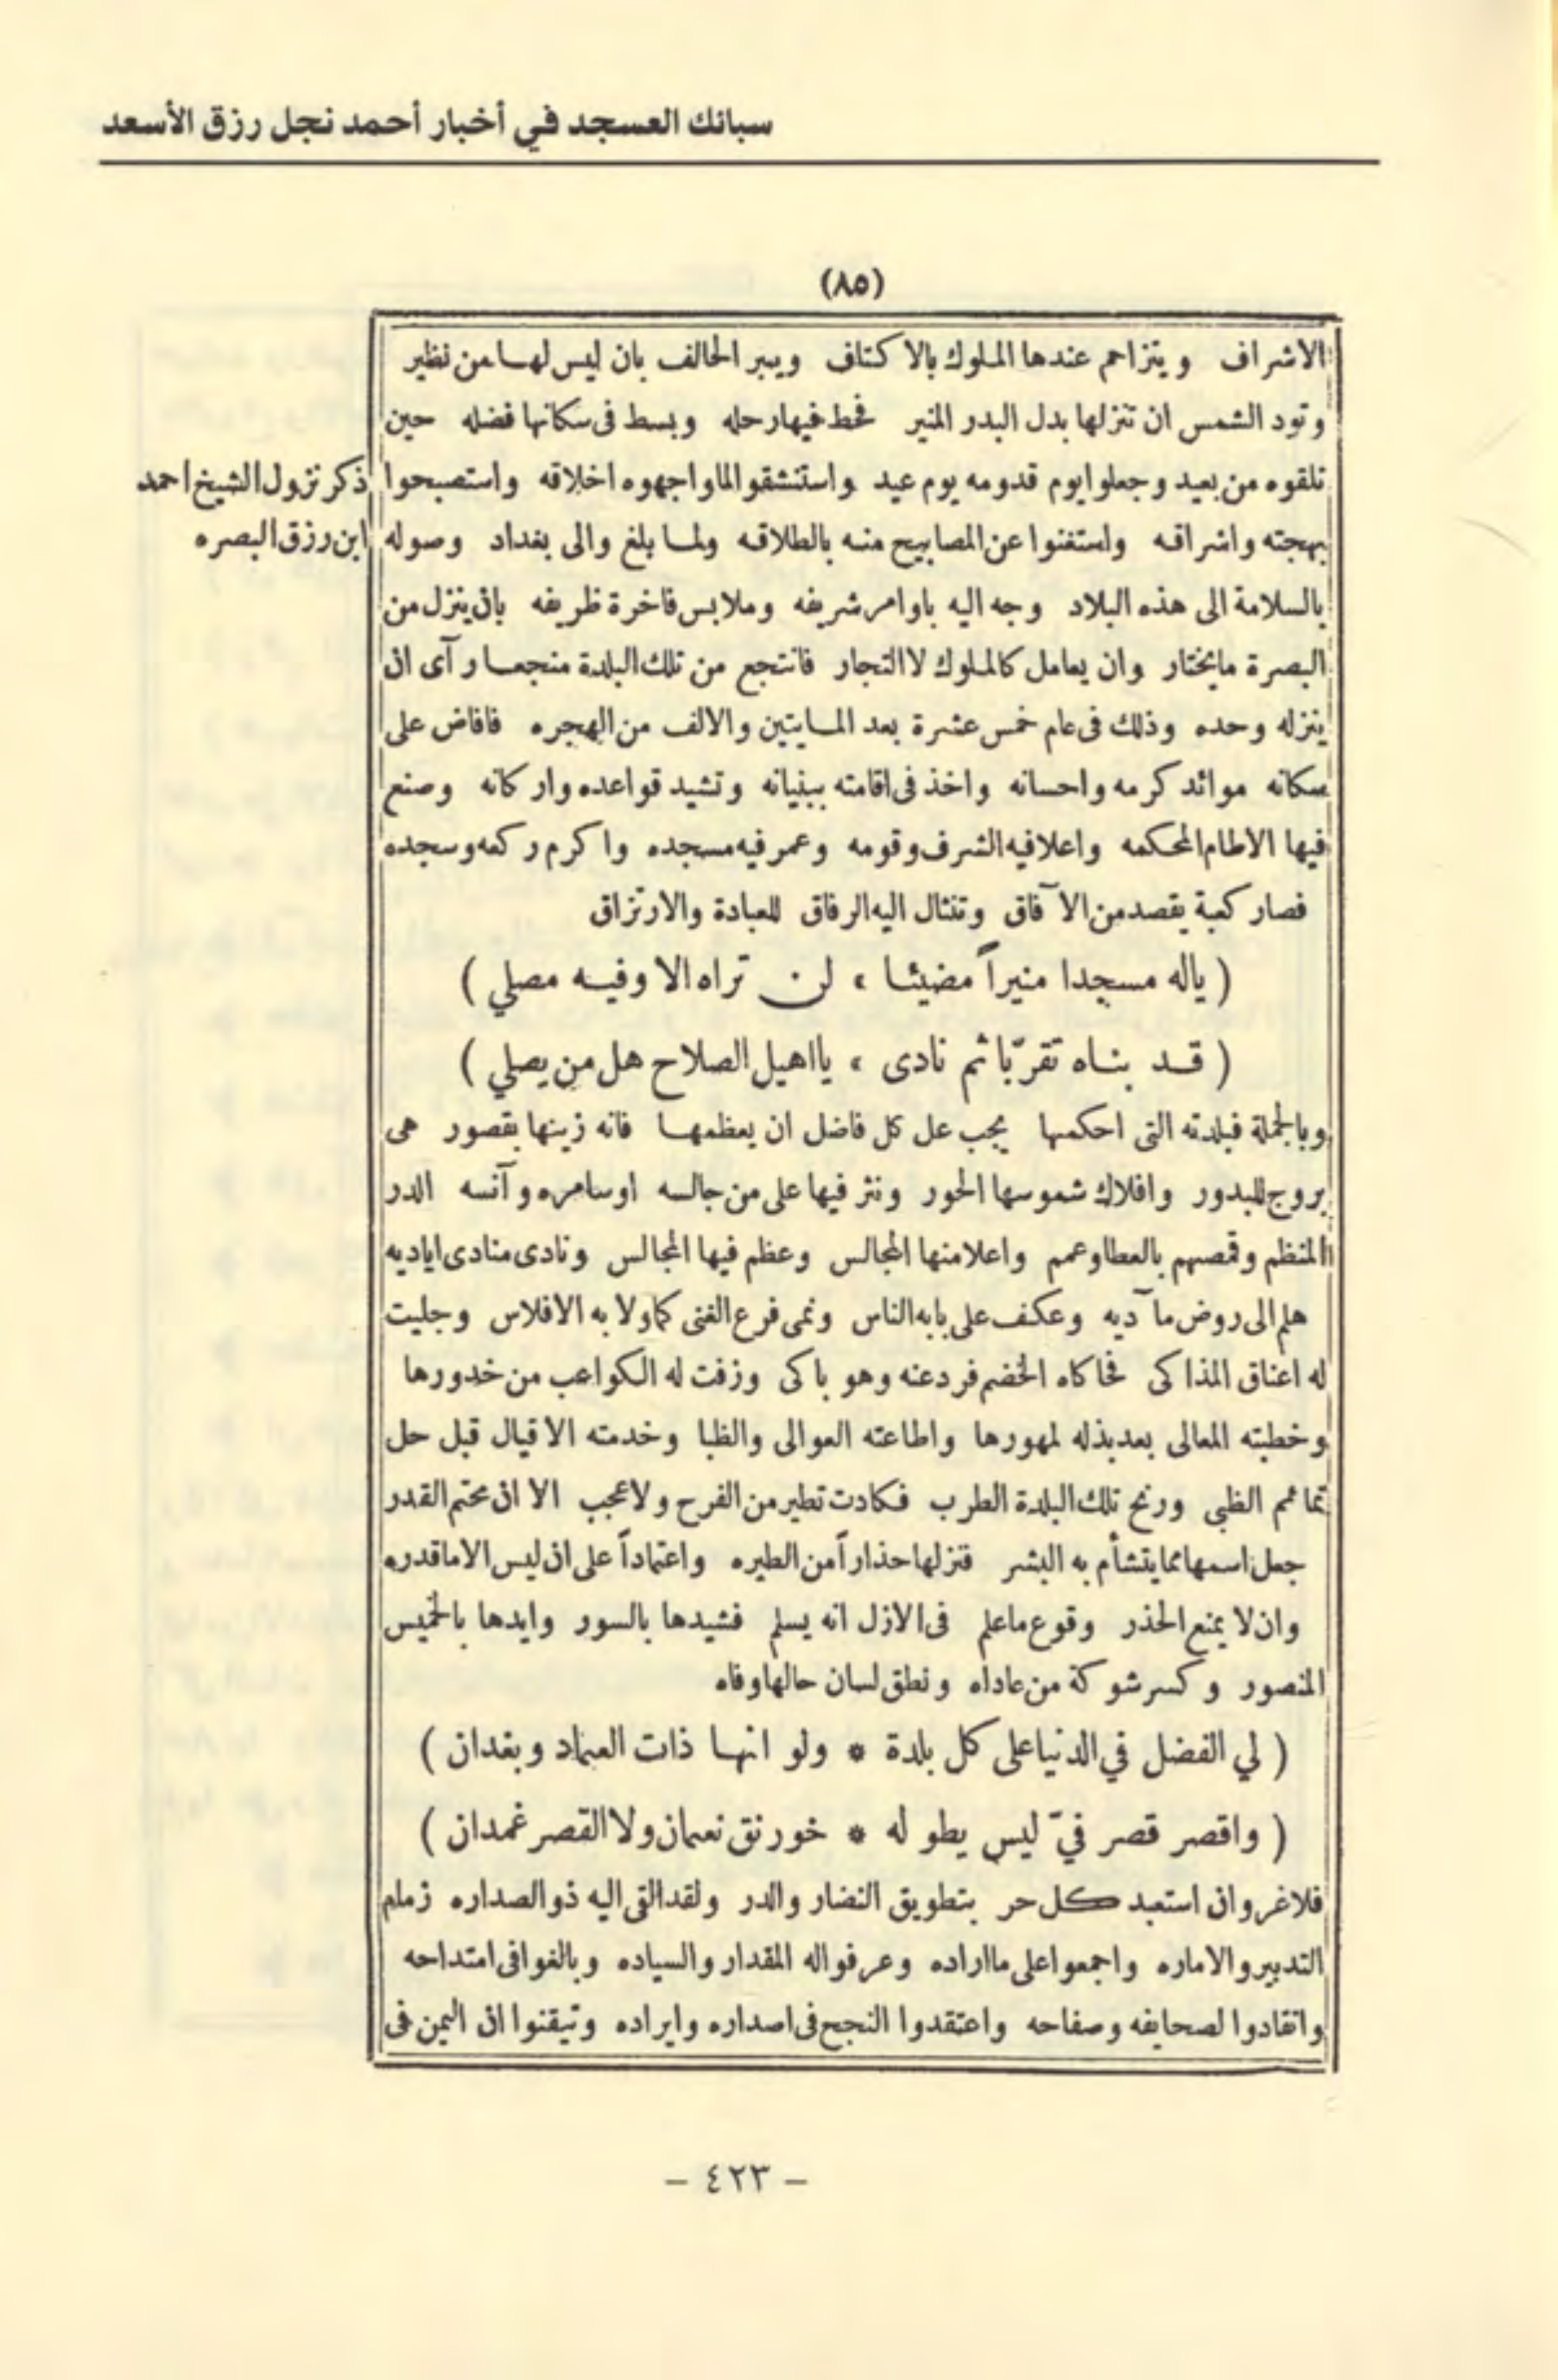 سبائك العسجد في أخبار أحمد نجل رزق الأسعد
(٨٥)
الاشراف ويتزاحم عندها الملوك بالاكتاف ويبر الحالف بان ليس لها من نظير
وتود الشمس ان تنزلها بدل البدر المنير فحط فيها رحله وبسط فى سكانها فضله حين
تلقوه من بعيد وجعلوا يوم قدومه يوم عيد واستنشقوا لما واجهوه اخلاقه واستصبحوا
ذكر نزول الشيخ احمد
بهجته واشراقه واستغنوا عن المصابيح منه بالطلاقه ولما بلغ والى بغداد وصوله
ابن رزق البصره
بالسلامة الى هذه البلاد وجه اليه باوامر شريفه وملابس فاخرة ظريفه بان ينزل من
البصرة مايختار وان يعامل كالملوك لا التجار فانتجع من تلك البلدة منجعا رآى ان
ينزله وحده وذلك فى عام خمس عشرة بعد المايتين والالف من الهجره فافاض على
سكانه موائد كرمه واحسانه واخذ فى اقامته ببنيانه وتشيد قواعده واركانه وصنع
فيها الاطام المحكمه واعلا فيه الشرف وقومه وعمر فيه مسجده واكرم ركعه وسجده
فصار كعبة يقصد من الآفاق وتنثال اليه الرفاق للعبادة والارتزاق
( ياله مسجدا منيراً مضيئا ، لن تراه الا وفيه مصلي )
( قد بناه تقرّبا ثم نادى ، يا اهيل الصلاح هل من يصلي )
وبالجملة فبلدته التى احكمها يجب عل كل فاضل ان يعظمها فانه زينها بقصور هى
بروج للبدور وافلاك شموسها الحور ونثر فيها على من جالسه اوسامره وآنسه الدر
المنظم وقمصهم بالعطا وعمم واعلا منها المجالس وعظم فيها المجالس ونادى منادى اياديه
هلم الى روض مآديه وعكف على بابه الناس ونمى فرع الغنى كما ولا به الافلاس وجليت
له اعناق المذاكى فحاكاه الخضم فردعنه وهو باكى وزفت له الكواعب من خدورها
وخطبته المعالى بعد بذله لمهورها واطاعته العوالى والظبا وخدمته الاقيال قبل حل
تمائم الظبى ورنح تلك البلدة الطرب فكادت تطير من الفرح ولا عجب الا ان محتم القدر
جعل اسمها مما يتشأم به البشر فنزلها حذاراً من الطيره واعتماداً على ان ليس الا ما قدره
وان لا يمنع الحذر وقوع ما علم فى الازل انه يسلم فشيدها بالسور وايدها بالخميس
المنصور وكسر شوكة من عاداه ونطق لسان حالها وفاه
( لي الفضل في الدنيا على كل بلدة * ولو انها ذات العماد وبغدان )
( واقصر قصر فيّ ليس يطوله * خورنق نعمان ولا القصر غمدان )
فلا غرو ان استعبد كل حر بتطويق النضار والدر ولقد التى اليه ذو الصداره زمام
التدبير والاماره واجمعوا على ما اراده وعرفوا له المقدار والسياده وبالغوا فى امتداحه
وانقادوا لصحايفه وصفاحه واعتقدوا النجح فى اصداره وايراده وتيقنوا ان اليمن فى
- ٤٢٣ -